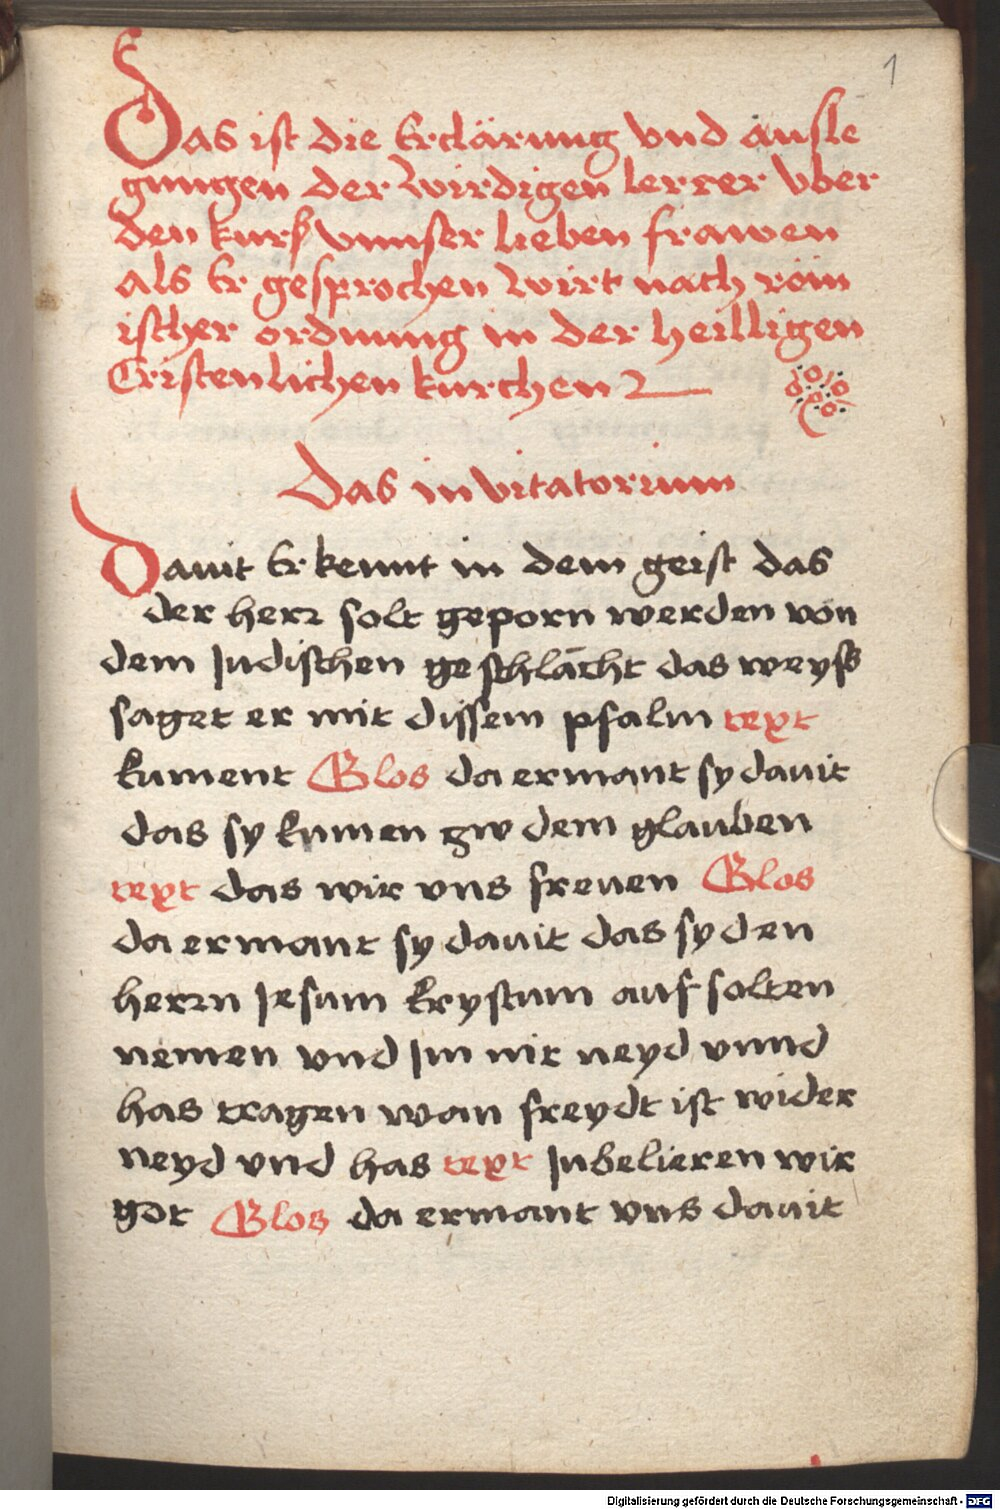 1
Das ist die Erclärung vnd ausle
gungen der wirdigen lerrer vber
den kurs vnnser lieben frawen
als Er gesprochen wirt nach röm
ischer ordnung in der heilligen
Cristenlichen kurchen
Das invitatorium
Dauit Erkennt in dem geist das
der herr solt geporn werden von
dem Judischen geschlächt das weyss
saget er mit dissem psalm text
kument Glos da ermant sy dauit
das sy kumen zw dem glauben
text das wir vns freuen Glos
da ermant sy dauit das sy den
herrn Jesum krystum auf solten
nemen vnd Jm nit neyd vnnd
has tragen wan freydt ist wider
neyd vnd has text Jubelieren wir
got Glos da ermant vns dauit
Digitalisierung gefördert durch die Deutsche Forschungsgemeinschaft - DFG